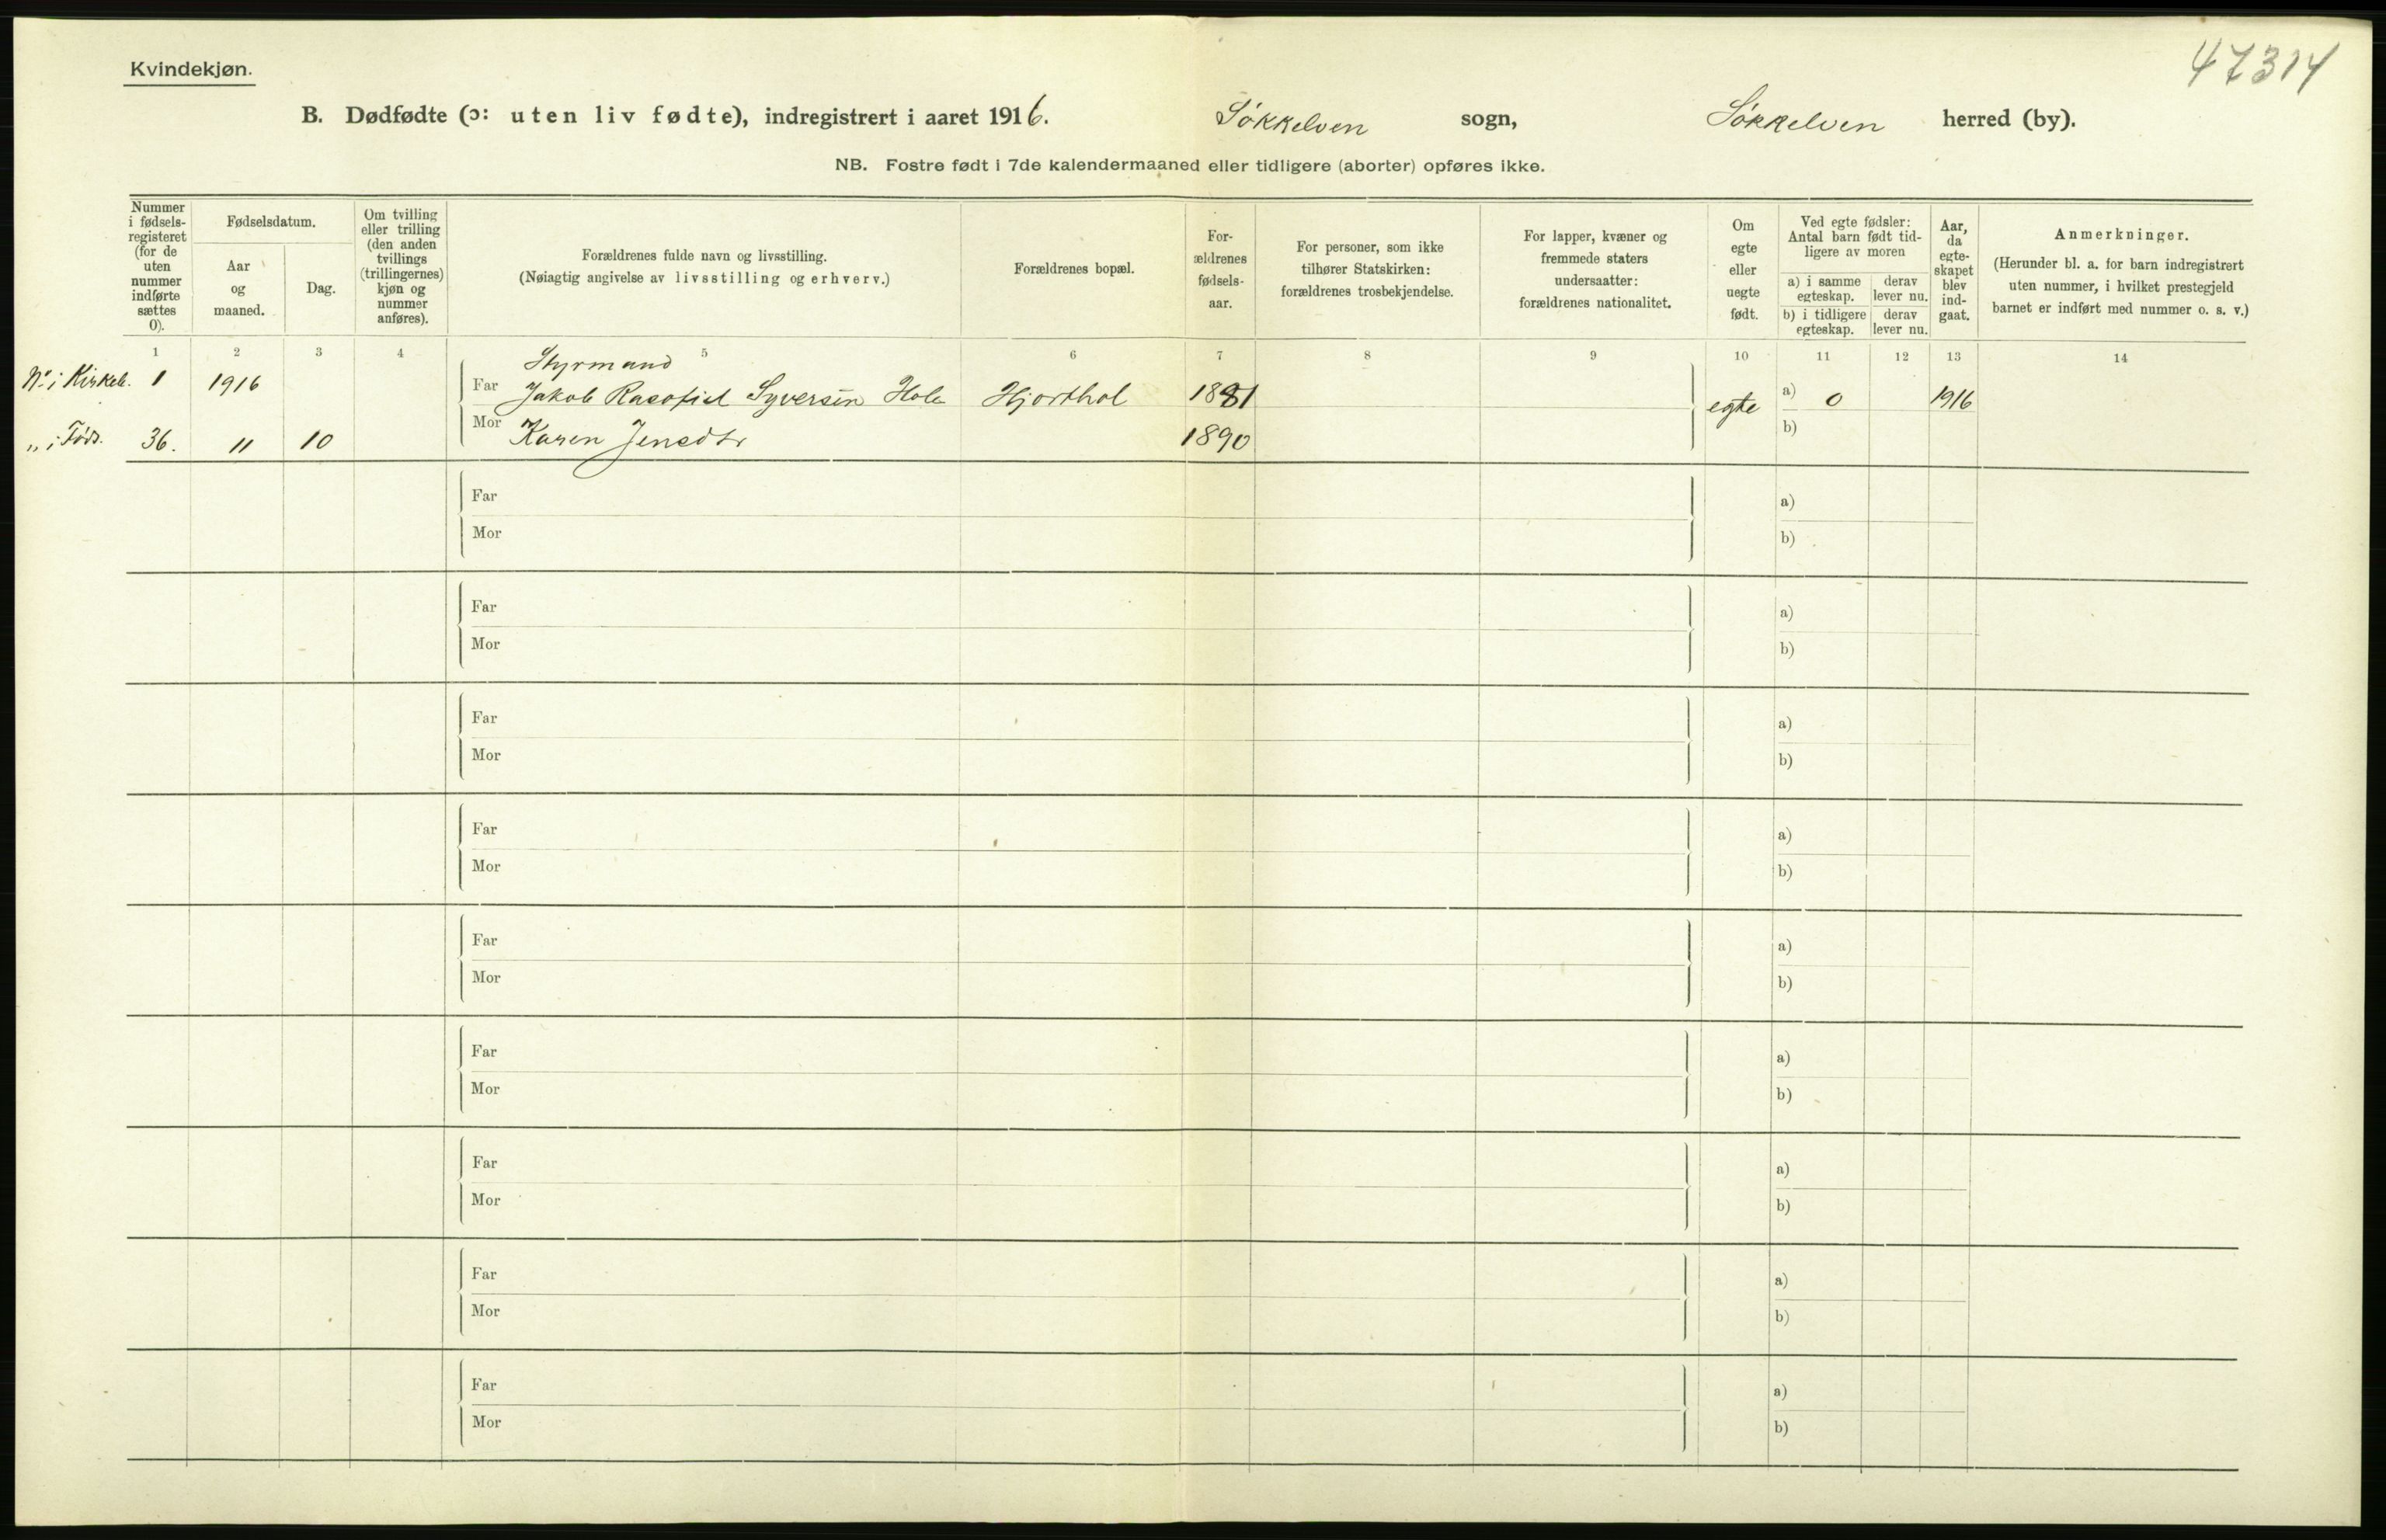 47314
Kvindekjøn.
B. Dødfødte (ɔ: uten liv fødte), indregistrert i aaret 1916. Søkkelven sogn, Søkkelven herred (by).
NB. Fostre født i 7de kalendermaaned eller tidligere (aborter) opføres ikke.
Nummer
i fødsels-
registeret
(for de
uten
nummer
indførte
sættes
0).
Fødselsdatum.
Aar
og
maaned.
Dag.
Om tvilling
eller trilling
(den anden
tvillings
(trillingernes)
kjøn og
nummer
anføres).
Forældrenes fulde navn og livsstilling.
(Nøiagtig angivelse av livsstilling og erhverv.)
Forældrenes bopæl.
For-
ældrenes
fødsels-
aar.
For personer, som ikke
tilhører Statskirken:
forældrenes trosbekjendelse.
For lapper, kvæner og
fremmede staters
undersaatter:
forældrenes nationalitet.
Om
egte
eller
uegte
født.
Ved egte fødsler:
Antal barn født tid-
ligere av moren
a) i samme
egteskap.
derav
lever nu.
b) i tidligere
egteskap.
derav
lever nu.
Aar,
da
egte-
skapet
blev
ind-
gaat.
Anmerkninger.
(Herunder bl. a. for barn indregistrert
uten nummer, i hvilket prestegjeld
barnet er indført med nummer o. s. v.)
1 2 3 4 5 6 7 8 9 10 11 12 13 14
Styrmand
No i Kirkeb. 1 1916 Far Jakob Syversen Hole Hjorthol 1881 egte a) 0 1916
„ i Føds. 36. 11 10 Mor Karen Jensdtr 1890 b)
Far a)
Mor b)
Far a)
Mor b)
Far a)
Mor b)
Far a)
Mor b)
Far a)
Mor b)
Far a)
Mor b)
Far a)
Mor b)
Far a)
Mor b)
Far a)
Mor b)